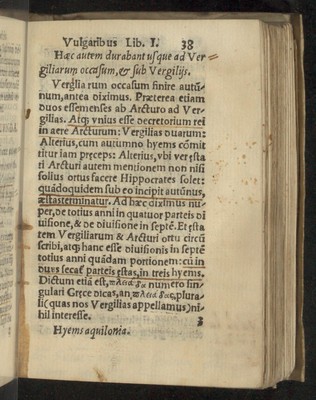 Vulgaribus Lib. I. 38
Hæc autem durabant usque ad Ver=
giliarum occasum, & sub Vergilijs.
Vergilia rum occasum finire autũ
num, antea diximus. Præterea etiam
duos essemenses ab Arcturo ad Ver
gilias. Atq; vnius esse decretorium rei
in aere Arcturum: Vergilias duarum:
Alterius, cum autumno hyems cõmit
titur iam pręceps: Alterius, vbi veręsta
ti Arcturi autem mentionem non nisi
solius ortus facere Hippocrates solet:
quãdoquidem sub eo incipit autũnus,
æstasterminatur. Ad hæc diximus nu
per, de totius anni in quatuor parteis di
uisione, & de diuisione in septẽ. Et ęsta
tem Vergiliarum & Arcturi ortu circũ
scribi, atq; hanc esse diuisionis in septẽ
totius anni quãdam portionem: cũ in
duas secaſ parteis ęstas, in treis hyems.
Dictum etiã est, numero sin
gulari Gręce dicas, an, plura
li( quas nos Vergilias appellamus) ni
hil interesse. 3
Hyems aquilonia.